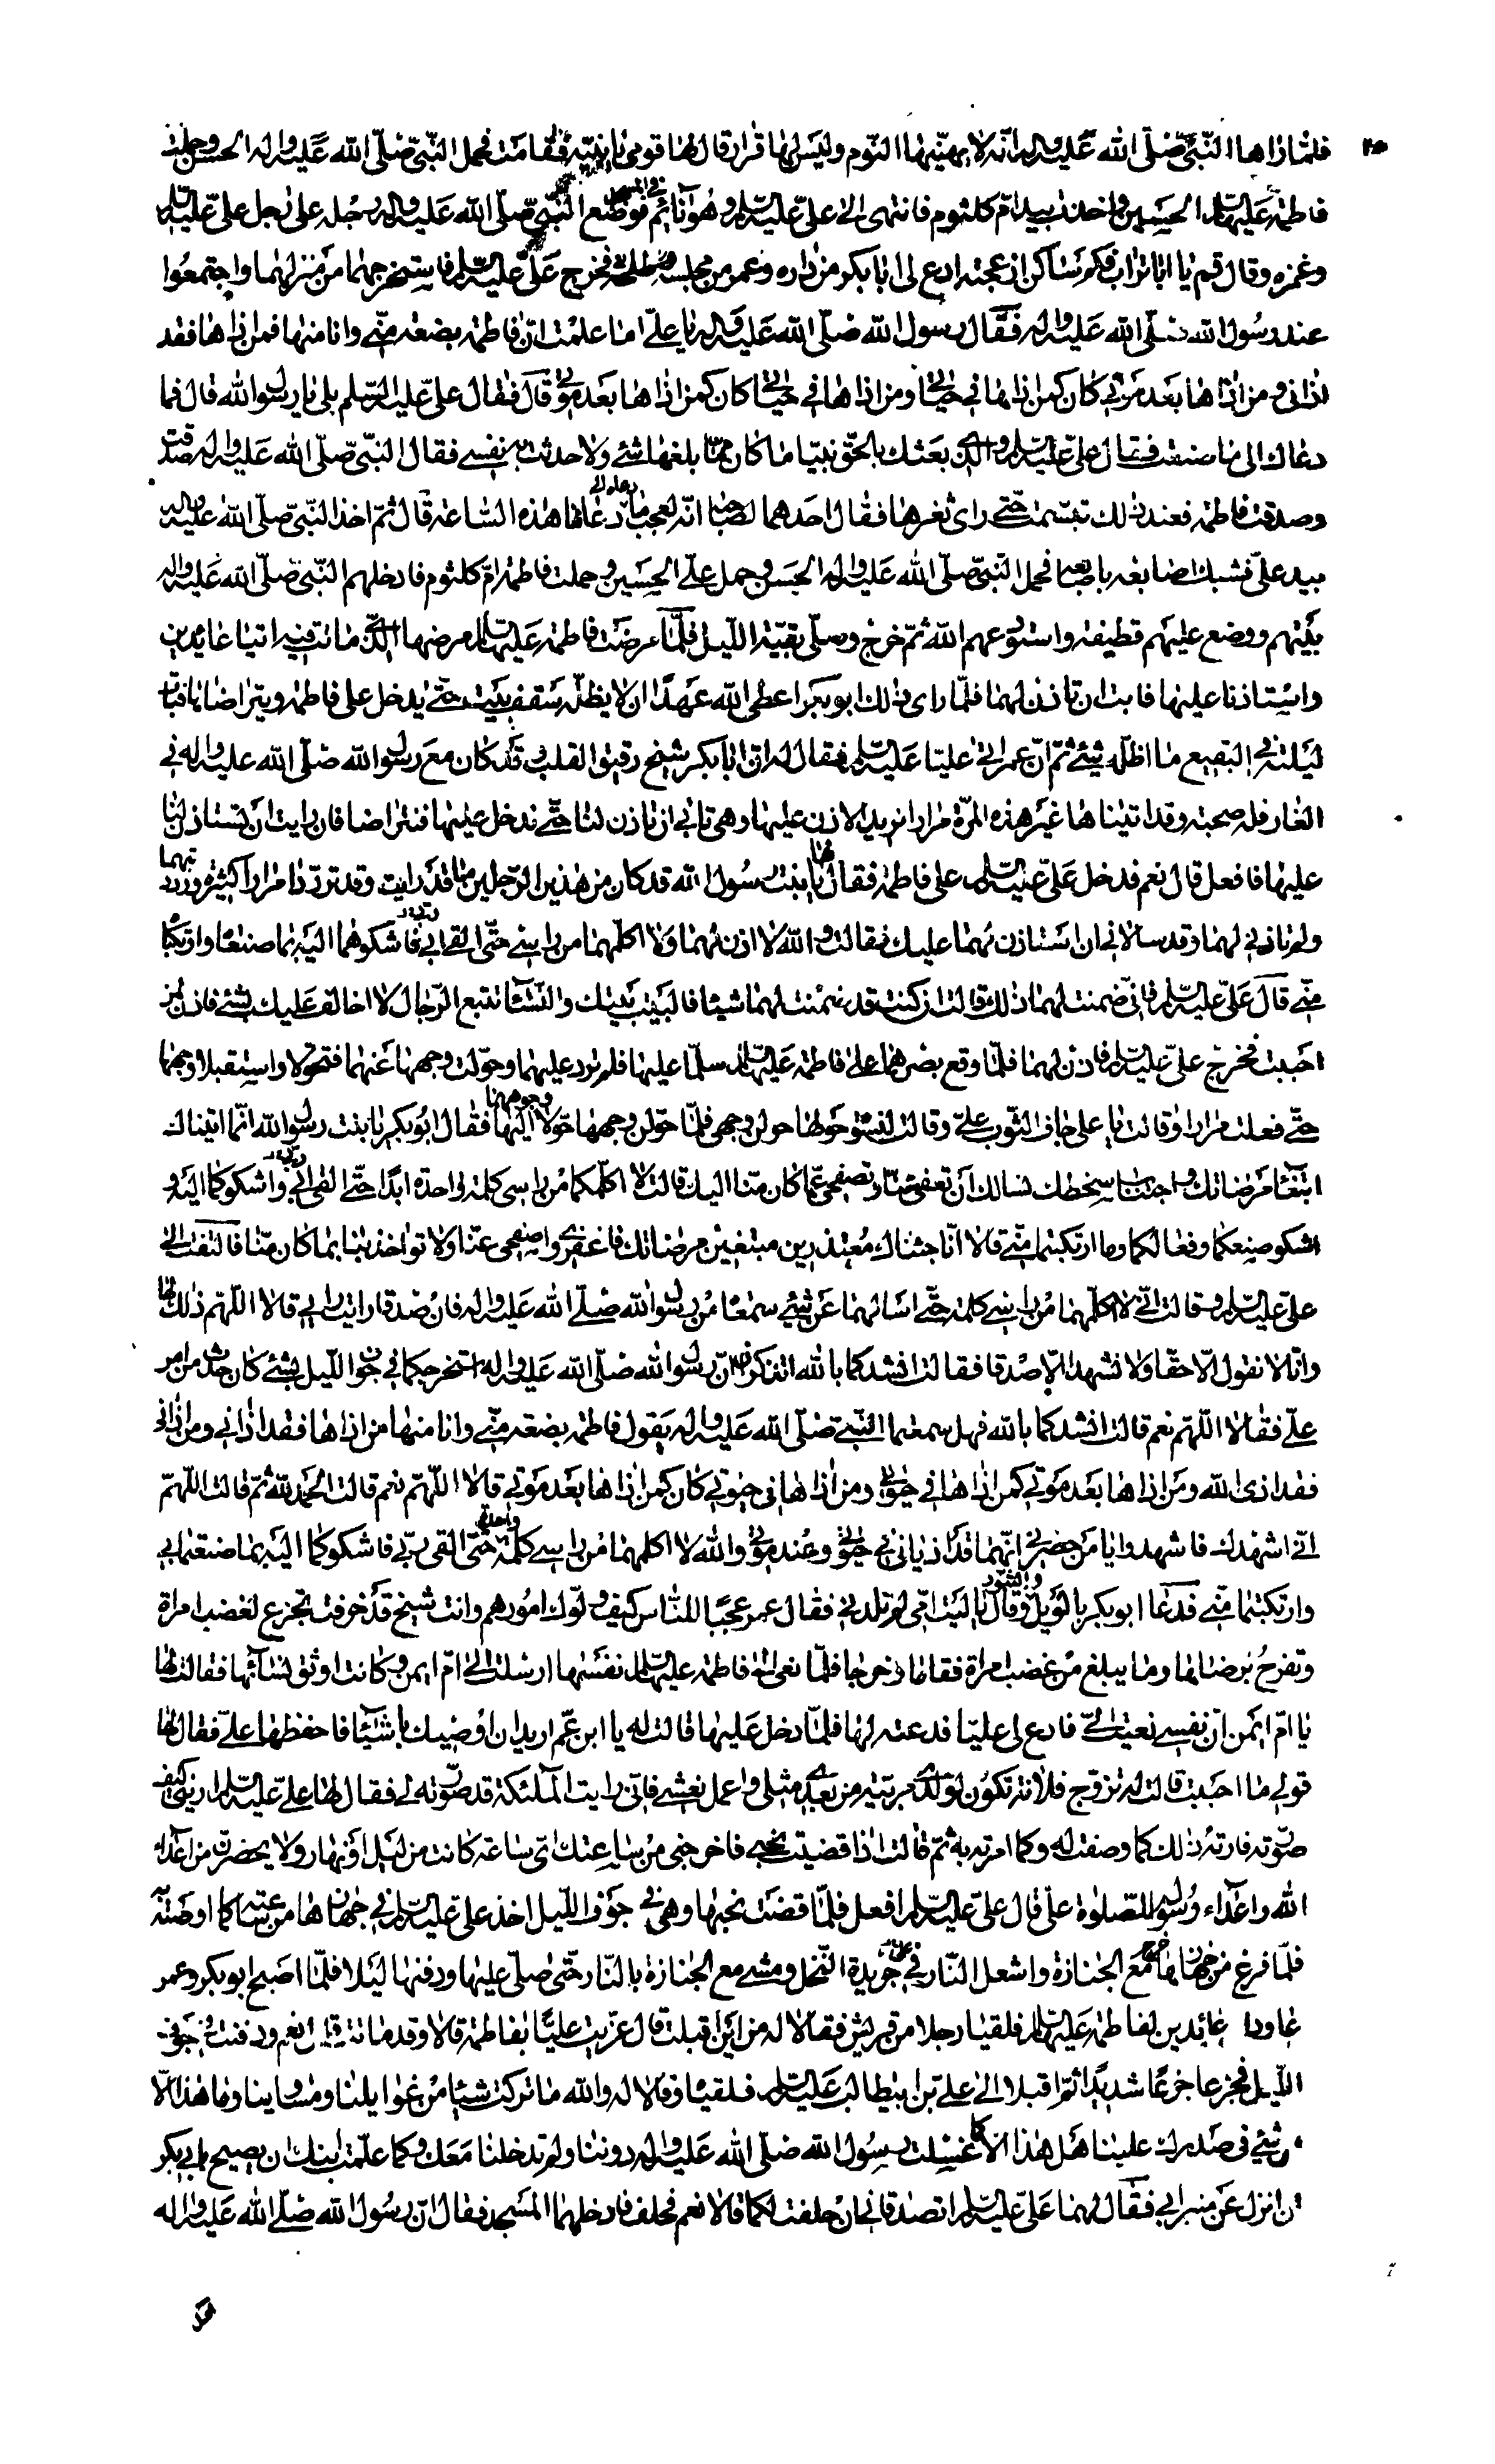 فلما راها النبی صلی الله علیه واله انه لا یهنیها النوم ولیس لها قرار قال لها قومی یا بنیة فقامت فحمل النبی صلی الله علیه واله الحسن وحملت
فاطمة علیها السلام الحسین واخذت بید ام کلثوم فانتهی الی علی علیه السلم وهو نائم فی المسجد فوضع النبی صلی الله علیه واله رجله علی رجل علی علیه السلم
وغمزه وقال قم یا ابا تراب فکم ساکن ازعجته ادع لی ابا بکر من داره وعمر من مجلسه وطلحة فخرج علی علیه السلم فاستخرجهما من منزلهما واجتمعوا
عند رسول الله صلی الله علیه واله فقال رسول الله صلی الله علیه واله یا علی اما علمت ان فاطمة بضعة منی وانا منها فمن اذاها فقد
اذانی ومن اذاها بعد موتی کان کمن اذاها فی حیاتی ومن اذاها فی حیاتی کان کمن اذاها بعد موتی قال فقال علی علیه السلم بلی یا رسول الله قال فما
دعاك الی ما صنعت فقال علی علیه السلم والذی بعثك بالحق نبیا ما کان منی مما بلغها شئ ولا حدثت به نفسی فقال النبی صلی الله علیه واله صدقت
وصدقت فاطمة فعند ذلك تبسمت حتی رای ثغرها فقال احدهما لصاحبه انه لعجب ما دعانا هذه الساعة قال ثم اخذ النبی صلی الله علیه واله
بید علی فشبك اصابعه باصابعه فحمل النبی صلی الله علیه واله الحسن وحمل علی الحسین وحملت فاطمة ام کلثوم فادخلهم النبی صلی الله علیه واله
بیتهم ووضع علیهم قطیفة واستودعهم الله ثم خرج وصلی بقیة اللیل فلما مرضت فاطمة علیها السلم مرضها الذی ماتت فیه اتیا عایدین
واستاذنا علیها فابت ان تاذن لهما فلما رای ذلك ابو بکر اعطی الله عهدا ان لا یظله سقف بیت حتی یدخل علی فاطمة ویتراضاها فبات
لیلة فی البقیع ما اظله شئ ثم ان عمر اتی علیا علیه السلم فقال له ان ابا بکر شیخ رقیق القلب وقد کان مع رسول الله صلی الله علیه واله فی
الغار فله صحبة وقد اتیناها غیر هذه المرة مرارا نرید الاذن علیها وهی تابی ان تاذن لنا حتی ندخل علیها فنتراضا فان رایت ان تستاذن لنا
علیها فافعل قال نعم فدخل علی علیه السلم علی فاطمة فقال لها یا بنت رسول الله قد کان من هذین الرجلین ما قد رایت وقد ترددا مرارا کثیرة ورددتهما
ولم تاذنی لهما وقد سالانی ان استاذن لهما علیك فقالت والله لا اذن لهما ولا اکلمهما من راسی حتی القی ابی فاشکوهما الیه بما صنعا وارتکبا
منی قال علی علیه السلم فانی ضمنت لهما ذلك قالت ان کنت قد ضمنت لهما شیئا فالبیت بیتك والنساء تتبع الرجال لا اخالف علیك بشئ فاذن لمن
احببت فخرج علی علیه السلم فاذن لهما فلما وقع بصرهما علی فاطمة علیها السلم سلما علیها فلم ترد علیهما وحولت وجهها عنهما فتحولا واستقبلا وجهها
حتی فعلت مرارا وقالت یا علی جاف الثوب علی وقالت لنسوة حولها حولن وجهی فلما حولن وجهها حولا الیها فقال ابو بکر یا بنت رسول الله انما اتیناك
ابتغاء مرضاتك واجتناب سخطك نسالك ان تعفی عنا وتصفحی عما کان منا الیك قالت لا اکلمکما من راسی کلمة واحدة ابدا حتی القی ابی واشکوکما الیه و
اشکو صنیعکما وفعالکما وما ارتکبتما منی قالا انا جئناك معتذرین مبتغین مرضاتك فاغفری واصفحی عنا ولا تواخذینا بما کان منا فالتفتت الی
علی علیه السلم وقالت انی لا اکلمهما من راسی کلمة حتی اسالهما عن شئ سمعاه من رسول الله صلی الله علیه واله فان صدقا رایت رایی قالا اللهم ذلك لها
وانا لا نقول الا حقا ولا نشهد الا صدقا فقالت انشدکما بالله اتذکران ان رسول الله صلی الله علیه واله استخرجکما فی جوف اللیل بشئ کان حدث من امر
علی فقالا اللهم نعم قالت انشدکما بالله فهل سمعتما النبی صلی الله علیه واله یقول فاطمة بضعة منی وانا منها من اذاها فقد اذانی ومن اذانی
فقد اذی الله ومن اذاها بعد موتی کمن اذاها فی حیوتی ومن اذاها فی حیوتی کان کمن اذاها بعد موتی قالا اللهم نعم قالت الحمد لله ثم قالت اللهم
انی اشهدك فاشهدوا یا من حضرنی انهما قد اذیانی فی حیوتی وعند موتی والله لا اکلمهما من راسی کلمة واحدة حتی القی ربی فاشکوکما الیه بما صنعتما بی
وارتکبتما منی فدعا ابو بکر بالویل والثبور وقال یا لیت امی لم تلدنی فقال عمر عجبا للناس کیف ولوك امورهم وانت شیخ قد خرفت تجزع لغضب امراة
وتفرح برضاها وما یبلغ من غضب امراة فقاما وخرجا فلما نعی الی فاطمة علیها السلم نفسها ارسلت الی ام ایمن وکانت اوثق نسائها فقالت لها
یا ام ایمن ان نفسی نعیت الی فادعی لی علیا فدعته لها فلما دخل علیها قالت له یا ابن عم ارید ان اوصیك باشیاء فاحفظها علی فقال لها
قولی ما احببت قالت له تزوج فلانة تکون لولدی مربیة من بعدی مثلی واعمل نعشی فانی رایت الملئکة قد صورته لی فقال لها علی علیه السلم ارینی کیف
صورته فارته ذلك کما وصفت له وکما امرته به ثم قالت اذا قضیت نحبی فاخرجنی من ساعتك ای ساعة کانت من لیل او نهار ولا یحضرن من اعداء
الله واعداء رسوله للصلوة علی قال علی علیه السلم افعل فلما قضت نحبها وهی فی جوف اللیل اخذ علی علیه السلم فی جهازها من ساعته کما اوصته
فلما فرغ من جهازها خرج مع الجنازة واشعل النار فی جریدة النخل ومشی مع الجنازة بالنار حتی صلی علیها ودفنها لیلا فلما اصبح ابو بکر وعمر
عاودا عایدین لفاطمة علیها السلم فلقیا رجلا من قریش فقالا له من این اقبلت قال عزیت علیا بفاطمة قالا وقد ماتت قال نعم ودفنت فی جوف
اللیل فجزعا جزعا شدیدا ثم اقبلا الی علی بن ابیطالب علیه السلم فلقیاه وقالا له والله ما ترکت شیئا من غوایلنا ومساینا وما هذا الا
من شئ فی صدرك علینا هل هذا الا کما غسلت رسول الله صلی الله علیه واله دوننا ولم تدخلنا معك وکما علمت ابنك ان یصیح بابی بکر
ان انزل عن منبر ابی فقال لهما علی علیه السلم اتصدقانی ان حلفت لکما قالا نعم فحلف فادخلهما المسجد فقال ان رسول الله صلی الله علیه واله